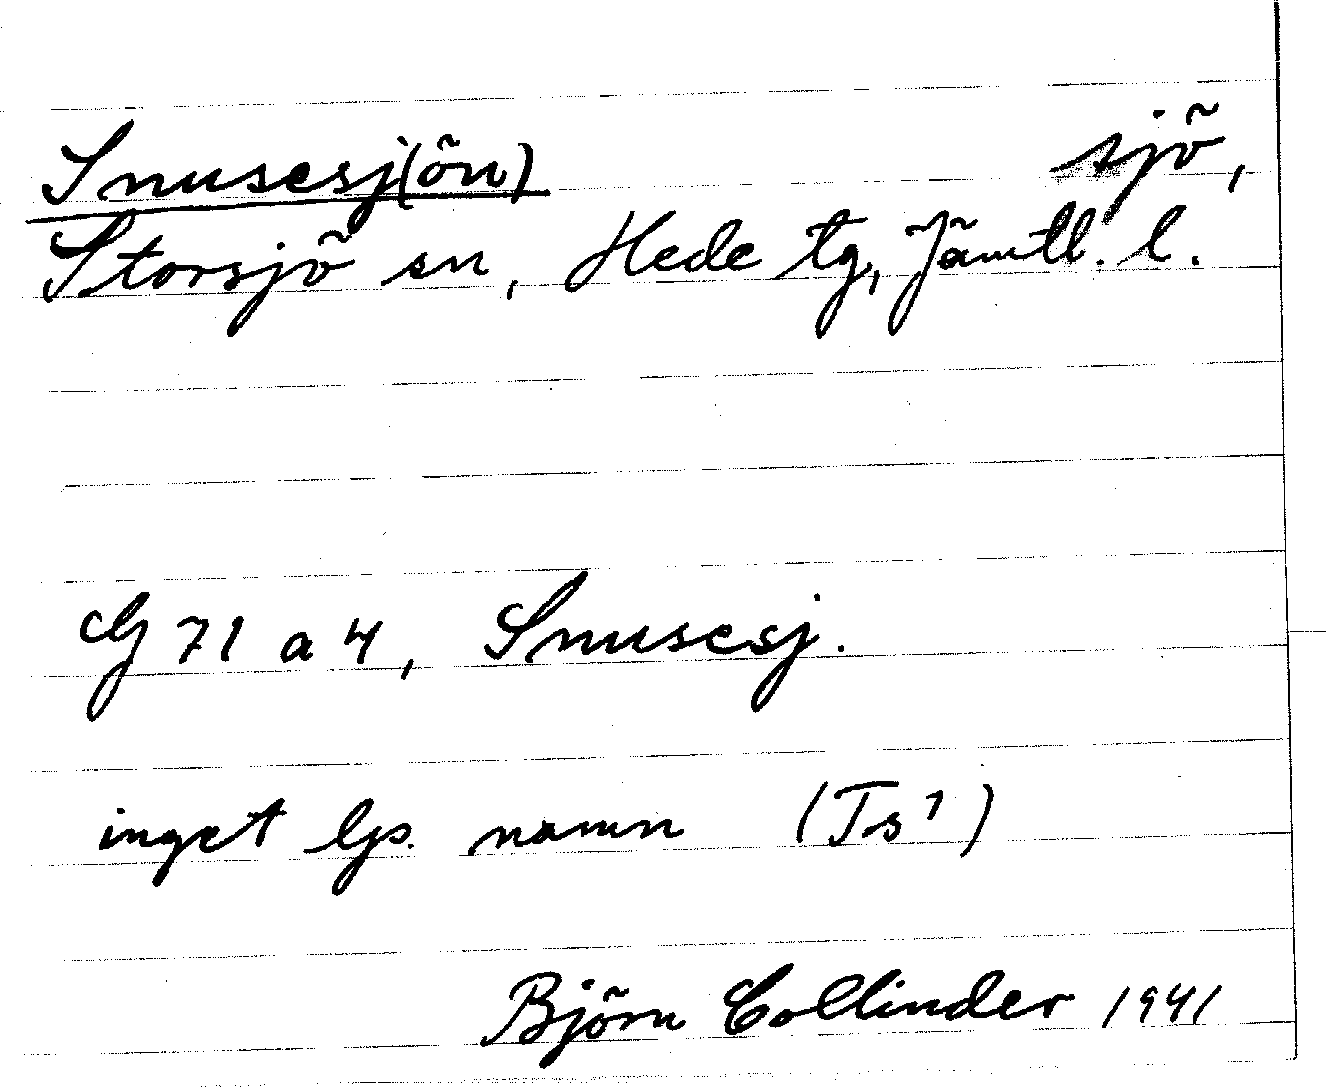 Snusesj(ön) sjö,
Storsjö sn, Hede tg, Jämtl. l.
G 71 a 4, Snusesj.
inget lps. namn (Ts 1)
Björn Collinder 1941